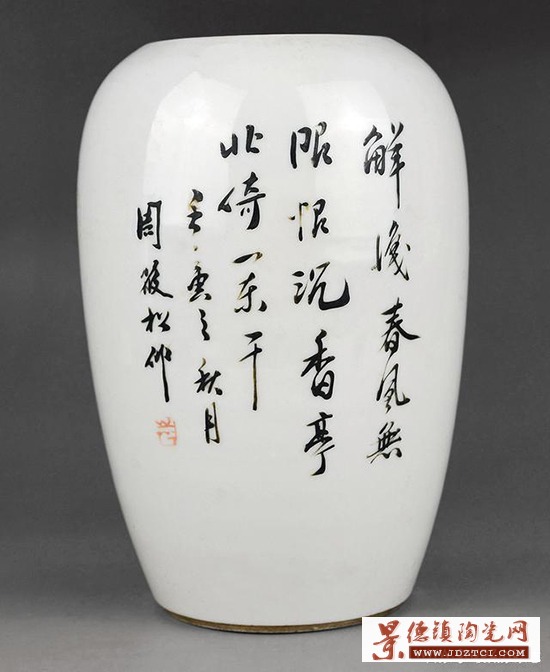 解春風無
限恨沉香亭
北倚闌干
壬寅之秋月
周筱松作
景德镇陶瓷网
WWW.JDZTCI.COM